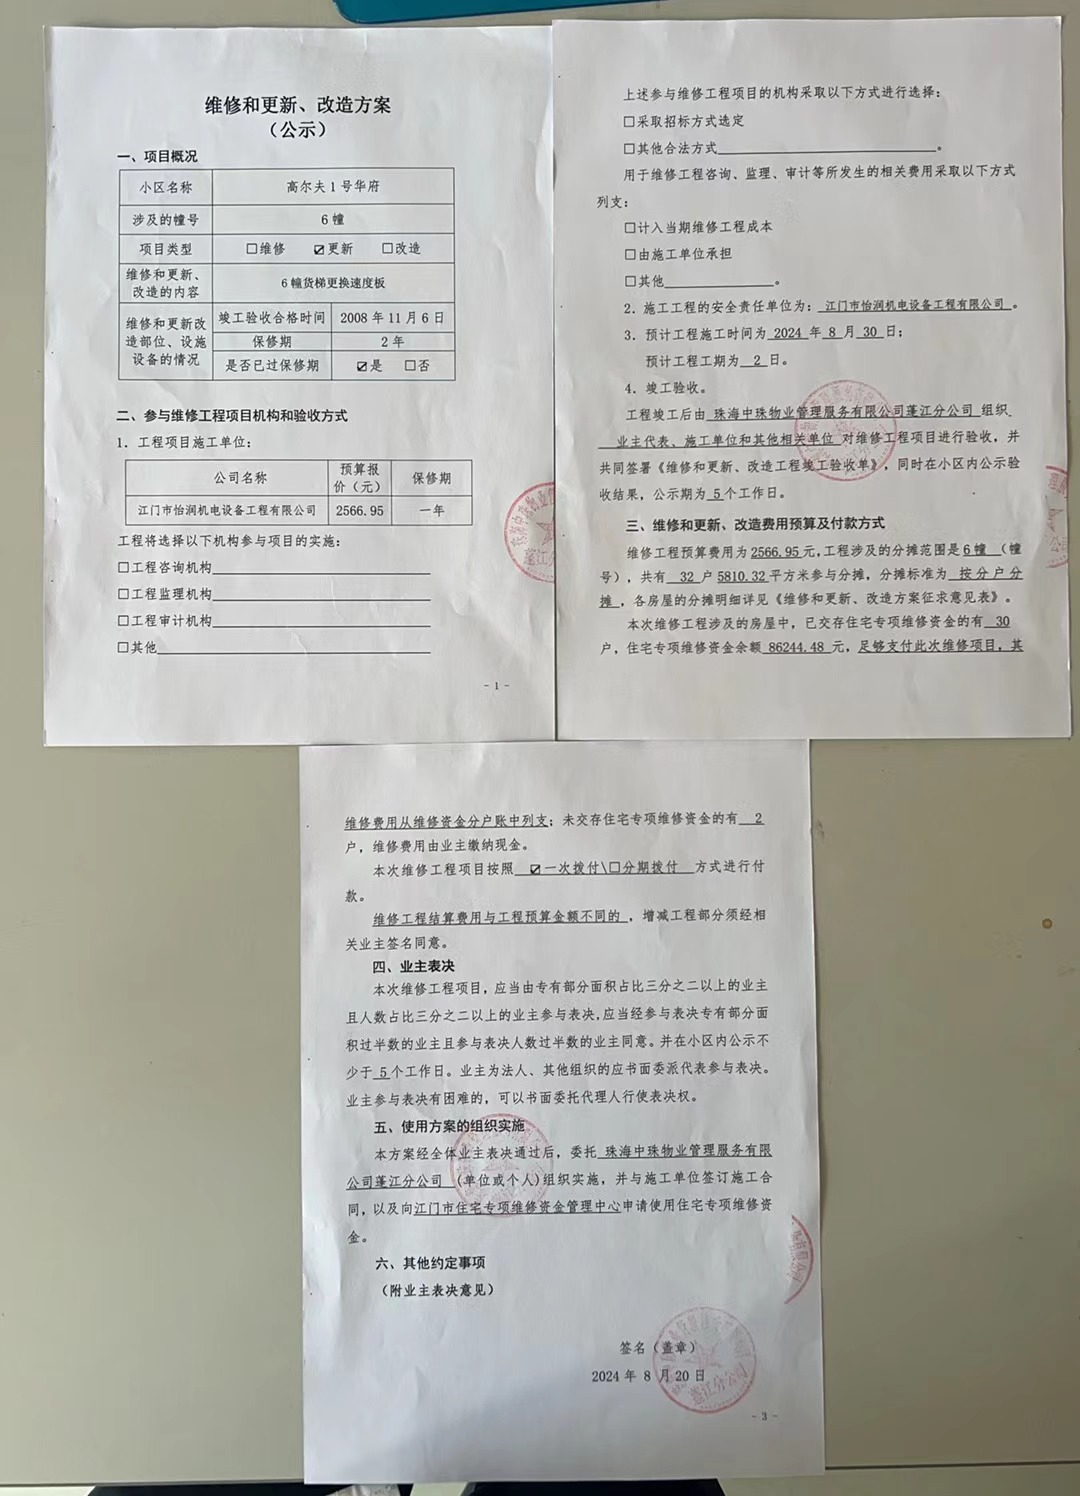 维修和更新、改造方案
（公示）
一、项目概况
小区名称 高尔夫1号华府
涉及的幢号 6幢
项目类型 ☐维修 ☑更新 ☐改造
维修和更新、
改造的内容 6幢货梯更换速度板
维修和更新改
造部位、设施
设备的情况
竣工验收合格时间 2008年11月6日
保修期 2年
是否已过保修期 ☑是 ☐否
二、参与维修工程项目机构和验收方式
1. 工程项目施工单位：
公司名称 预算报
价（元） 保修期
江门市怡润机电设备工程有限公司 2566.95 一年
工程将选择以下机构参与项目的实施：
☐工程咨询机构
☐工程监理机构
☐工程审计机构
☐其他
- 1 -
上述参与维修工程项目的机构采取以下方式进行选择：
☐采取招标方式选定
☐其他合法方式。
用于维修工程咨询、监理、审计等所发生的相关费用采取以下方式
列支：
☐计入当期维修工程成本
☐由施工单位承担
☐其他。
2. 施工工程的安全责任单位为：江门市怡润机电设备工程有限公司。
3. 预计工程施工时间为 2024 年 8 月 30 日；
预计工程工期为 2 日。
4. 竣工验收。
工程竣工后由 珠海中珠物业管理服务有限公司蓬江分公司 组织
业主代表、施工单位和其他相关单位 对维修工程项目进行验收，并
共同签署《维修和更新、改造工程竣工验收单》，同时在小区内公示验
收结果，公示期为 5 个工作日。
三、维修和更新、改造费用预算及付款方式
维修工程预算费用为 2566.95 元，工程涉及的分摊范围是 6幢 （幢
号），共有 32 户 5810.32 平方米参与分摊，分摊标准为 按分户分
摊 ，各房屋的分摊明细详见《维修和更新、改造方案征求意见表》。
本次维修工程涉及的房屋中，已交存住宅专项维修资金的有 30
户，住宅专项维修资金余额 86244.48 元，足够支付此次维修项目，其
维修费用从维修资金分户账中列支；未交存住宅专项维修资金的有 2
户，维修费用由业主缴纳现金。
本次维修工程项目按照 ☑一次拨付\☐分期拨付 方式进行付
款。
维修工程结算费用与工程预算金额不同的 ，增减工程部分须经相
关业主签名同意。
四、业主表决
本次维修工程项目，应当由专有部分面积占比三分之二以上的业主
且人数占比三分之二以上的业主参与表决，应当经参与表决专有部分面
积过半数的业主且参与表决人数过半数的业主同意。并在小区内公示不
少于 5 个工作日。业主为法人、其他组织的应书面委派代表参与表决。
业主参与表决有困难的，可以书面委托代理人行使表决权。
五、使用方案的组织实施
本方案经全体业主表决通过后，委托 珠海中珠物业管理服务有限
公司蓬江分公司 （单位或个人）组织实施，并与施工单位签订施工合
同，以及向江门市住宅专项维修资金管理中心申请使用住宅专项维修资
金。
六、其他约定事项
（附业主表决意见）
签名（盖章）
2024 年 8 月 20 日
蓬江分公司
- 3 -